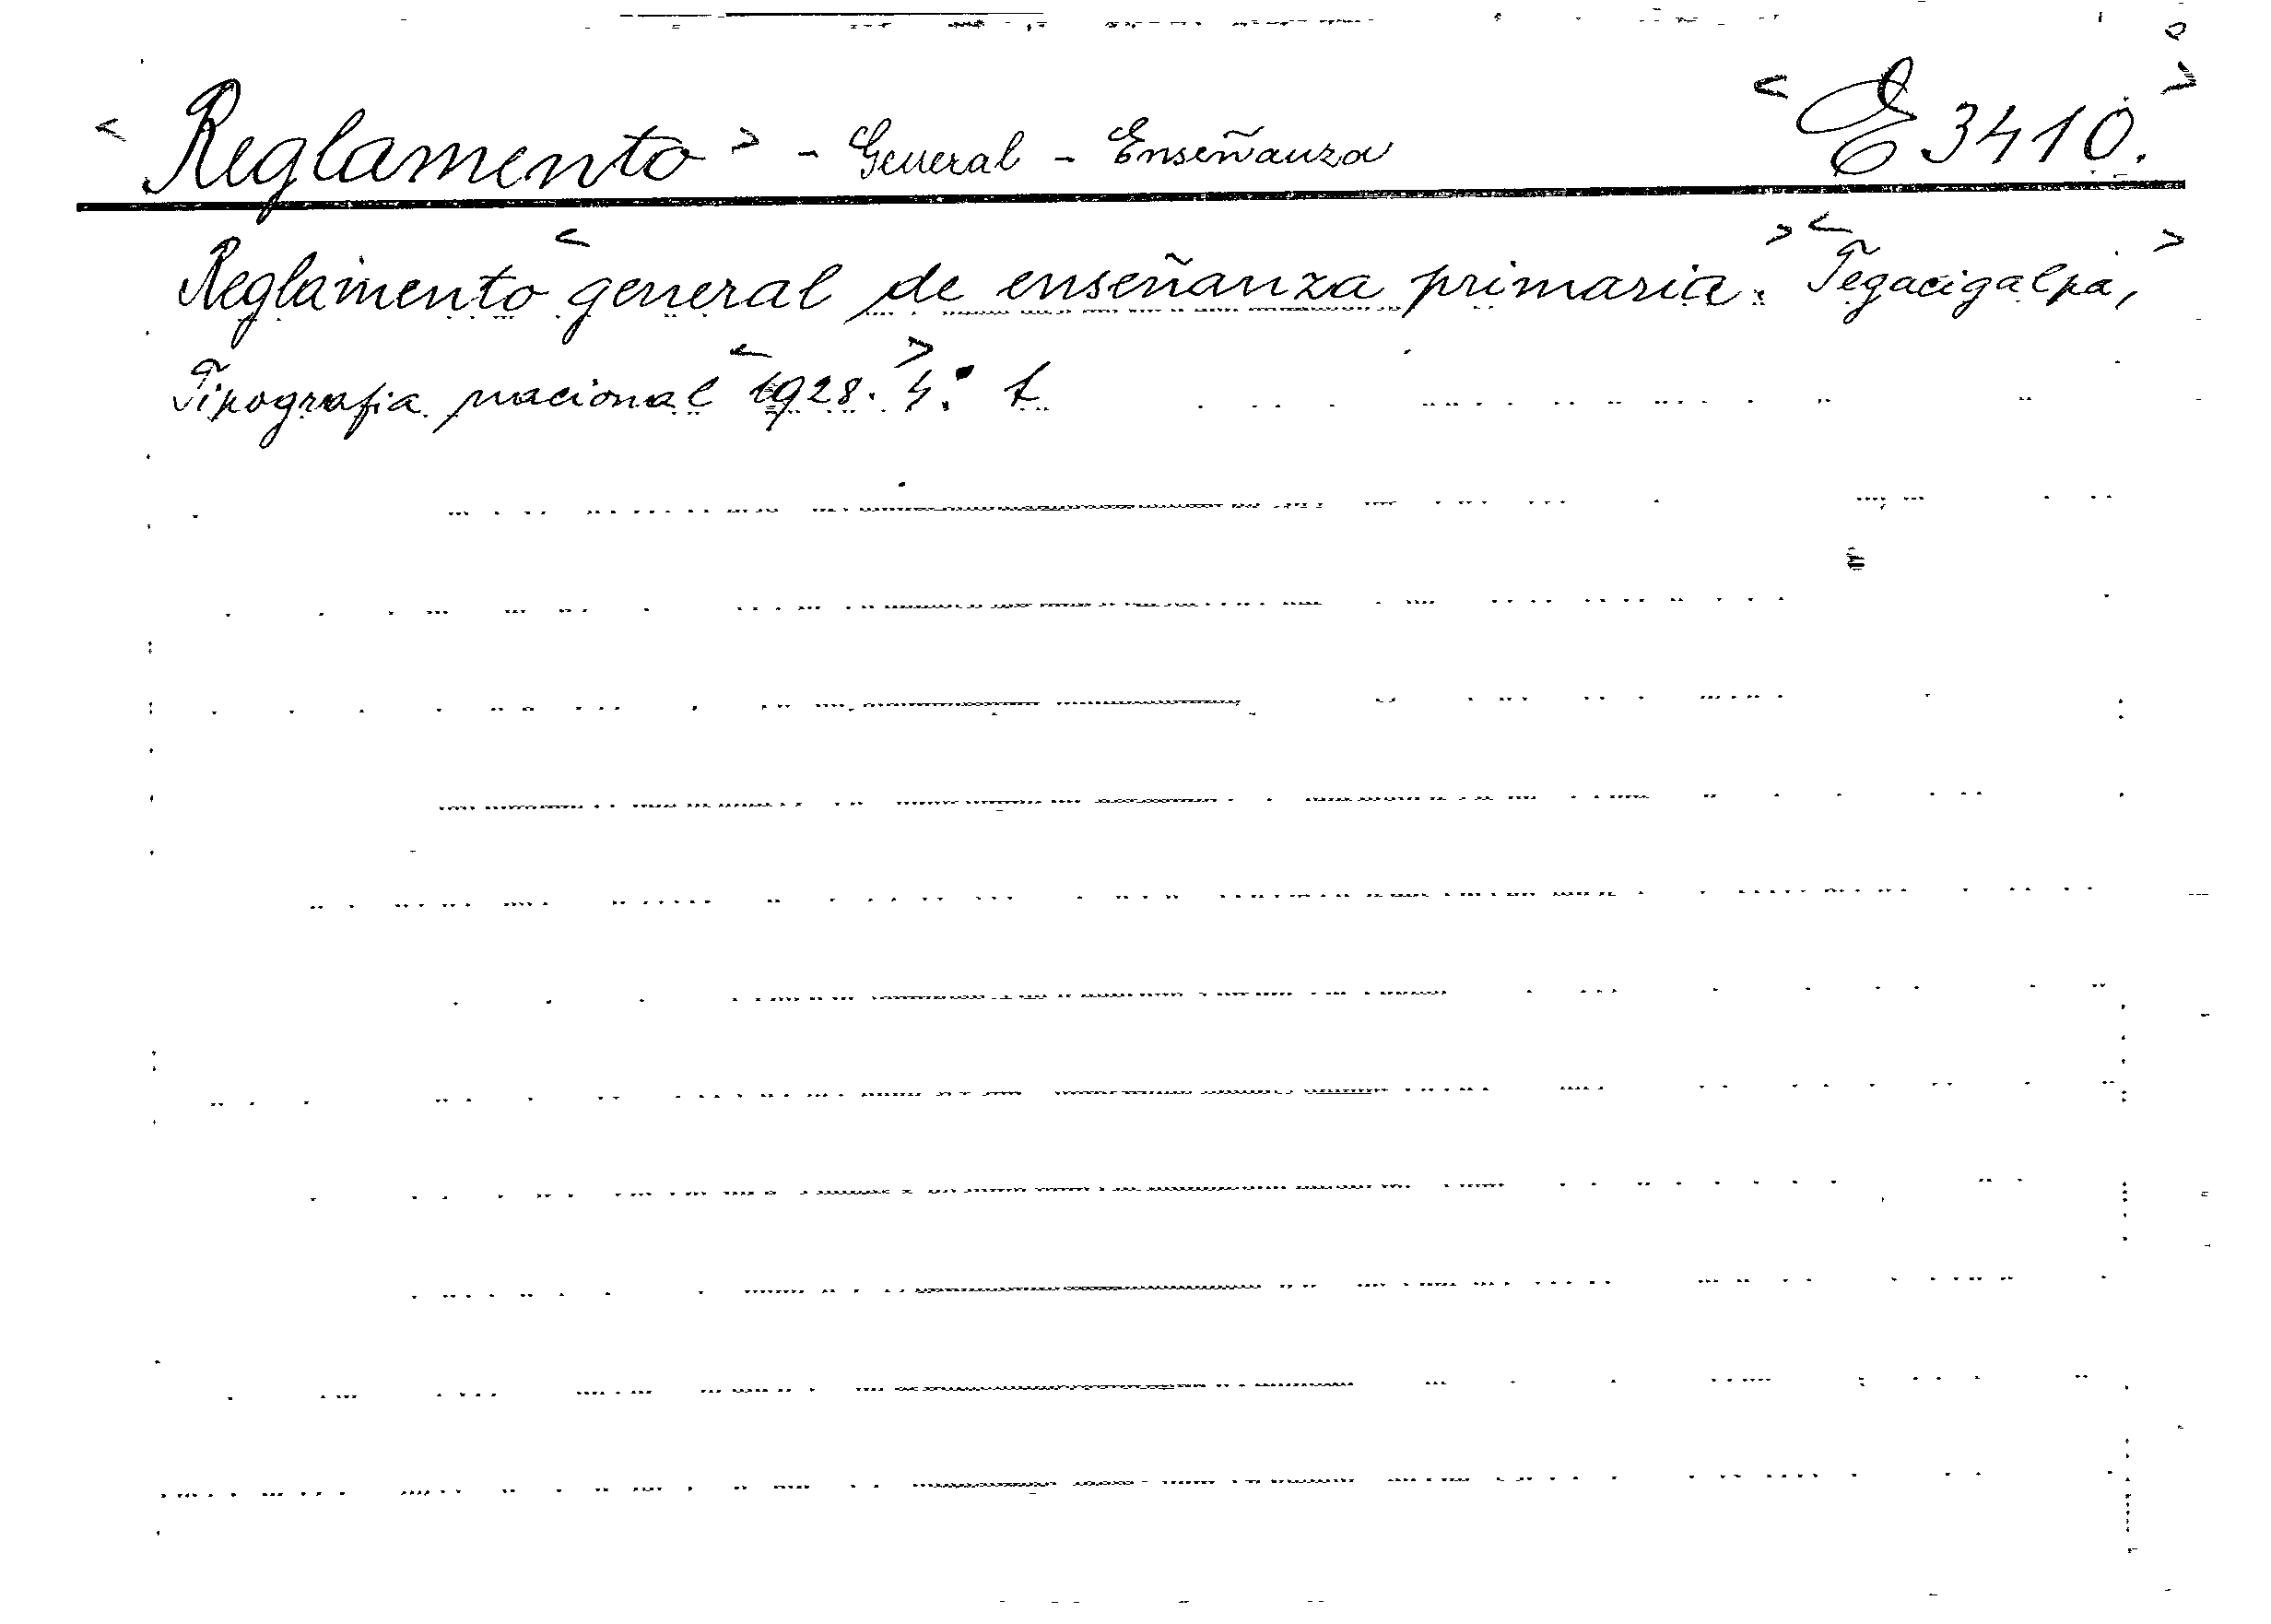 < Reglamento > - General - Enseñanza < E 3410. >
Reglamento < general de enseñanza primaria. > < Tegacigalpa, >
Tipografia nacional < 1928. > 4.° t